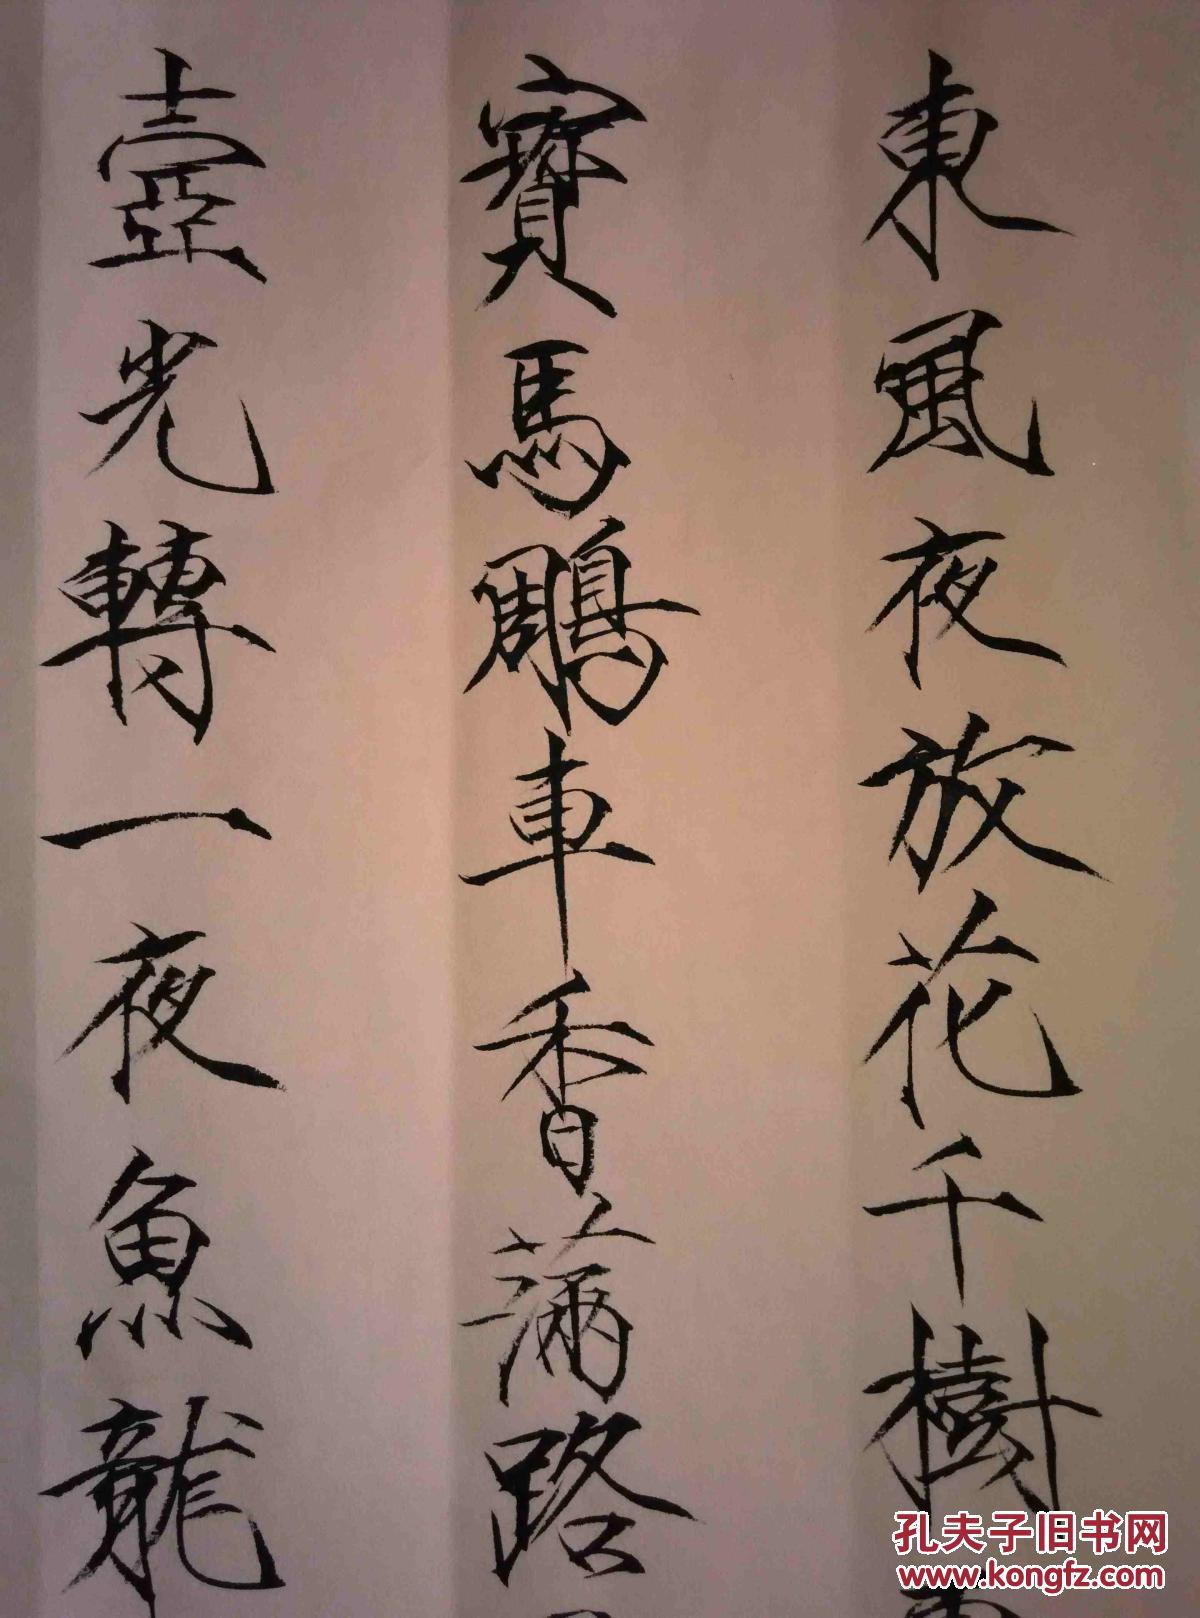 東風夜放花千樹
寶馬鵰車香滿路
壺光轉一夜魚龍
孔夫子旧书网
www.kongfz.com